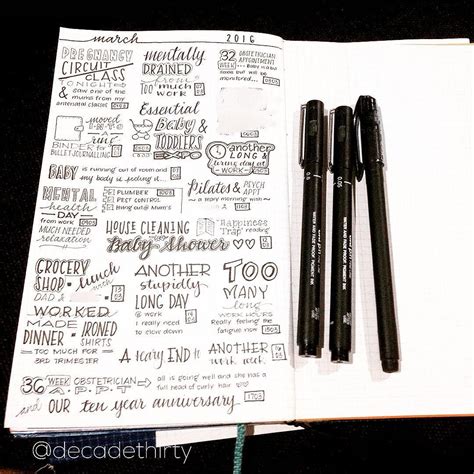 march 2016
PREGNANCY
CIRCUIT
CLASS
TONIGHT &
saw one of the
mums from my
antenatal classes
mentally
DRAINED
from
TOO much
WORK
32 OBSTETRICIAN
WEEK APPOINTMENT
Baby is a bit
will be
monitored
Essential
Baby &
TODDLERS
moved
to a
RING
BINDER for
BULLET JOURNALLING
another
LONG &
tiring day at
WORK
BABY is running out of room and
my body is feeling it
MENTAL
health
DAY
from work
MUCH NEEDED
relaxation
PLUMBER
PEST CONTROL
Hang out @ Mum's
Pilates & PSYCH
APPT
a busy morning with
HOUSE CLEANING
for
Baby Shower
"Happiness
Trap" reading
GROCERY
SHOP & lunch
with
DAD &
ANOTHER
stupidly
LONG DAY
@ work
I really need
to slow down
TOO
MANY
long
WORK HOURS
Really feeling the
fatigue now
WORKED
MADE
DINNER & IRONED
SHIRTS
TOO MUCH FOR
3RD TRIMESTER
A weary END to ANOTHER
work week
36 WEEK OBSTETRICIAN
APPT
all is going well and she has a
full head of curly hair
and OUR ten year anniversary
0.05
0.05
WATER AND FADE PROOF PIGMENT INK
WATER AND FADE PROOF PIGMENT INK
@decadethirty